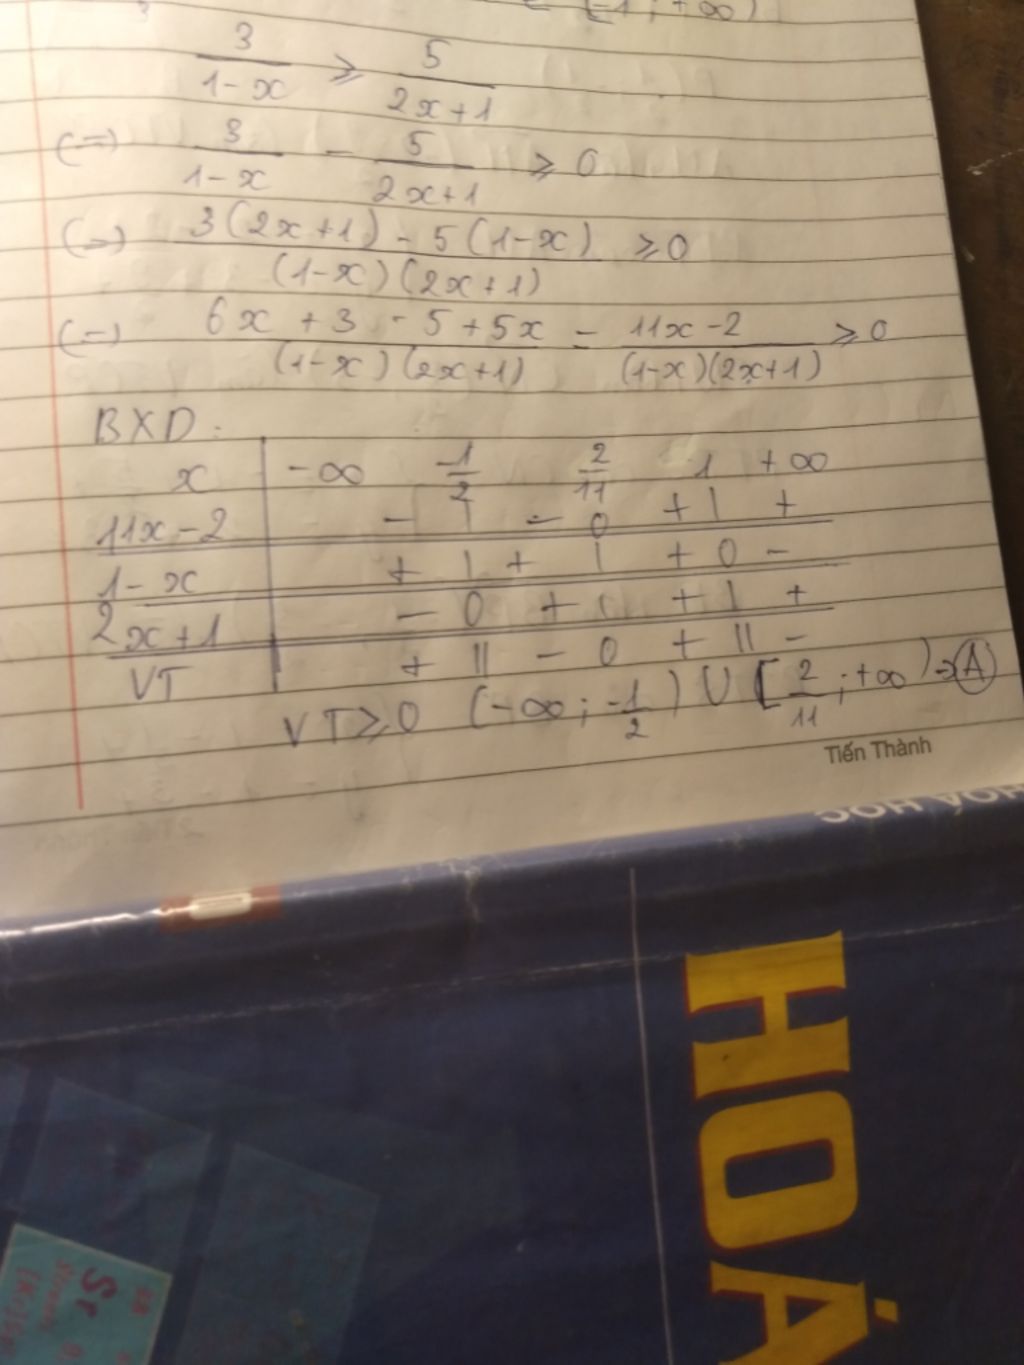 (-1; +∞)
3/(1-x) ≥ 5/(2x+1)
(=) 3/(1-x) - 5/(2x+1) ≥ 0
(=) (3(2x+1) - 5(1-x))/((1-x)(2x+1)) ≥ 0
(=) (6x + 3 - 5 + 5x)/((1-x)(2x+1)) = (11x-2)/((1-x)(2x+1)) ≥ 0
BXD:
x | -∞ -1/2 2/11 1 +∞
11x-2 | - | - 0 + | +
1-x | + | + | + 0 -
2x+1 | - 0 + | + | +
VT | + || - 0 + || -
VT ≥ 0 (-∞; -1/2) U [2/11; +∞) → A
Tiến Thành
HOÁ
Sr